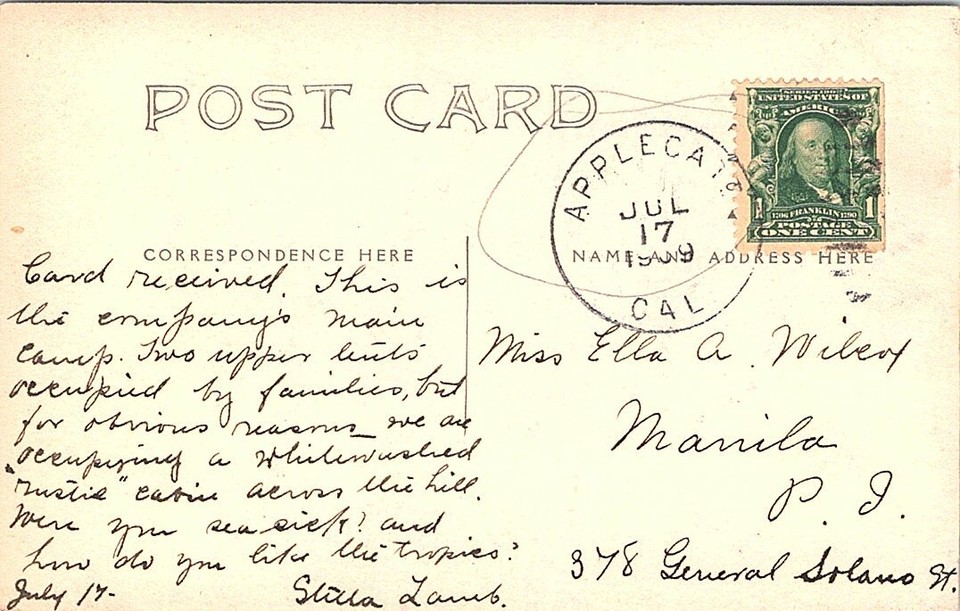 POST CARD
SERIES 1902
UNITED STATES OF
AMERICA
1706 FRANKLIN 1790
1 1
POSTAGE
ONE CENT
APPLEGATE
JUL
17
1909
CAL
CORRESPONDENCE HERE
NAME AND ADDRESS HERE
Card received. This is
the company's main
camp. Two upper tents
occupied by families, but
for obvious reasons we are
occupying a whitewashed
"rustic" cabin across the hill.
Were you sea sick? and
how do you like the tropics?
July 17- Stella Lamb.
Miss Ella A. Wilcox
Manila
P. I.
378 General Solano St.